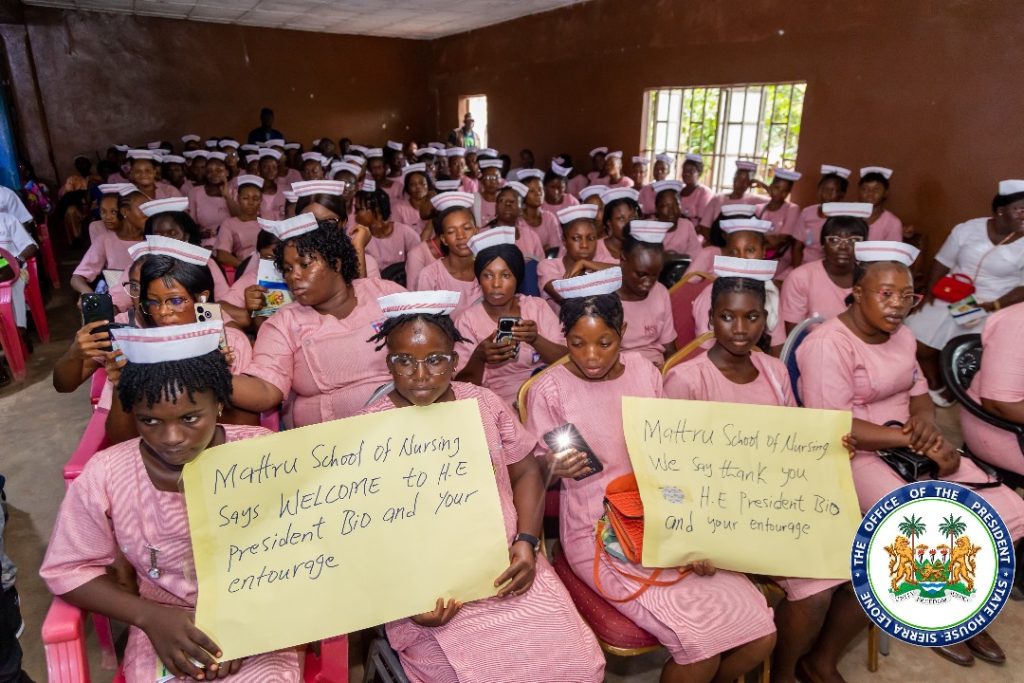 Mattru School of Nursing
Says WELCOME to H.E
president Bio and your
entourage
Mattru School of Nursing
We say thank you
H.E President Bio
and your entourage
THE OFFICE OF THE PRESIDENT
STATE HOUSE · SIERRA LEONE